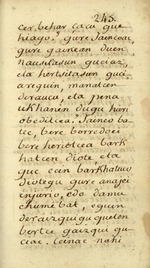 243.
cer behar çacu gue
hiago, gure Jaincoac,
gure gainean duen
nausitasun guciaz,
eta hortxitasun guci
arequin, manatcen
derauku, eta pena
ukhanen dugu hari
obeditcea. Jainco ba
tec, bere borredoei
bere heriotcea bark
hatcen diote eta
guc ecin barkhatuco
diotegu gure anajei
injurio, edo damu
chume bat, egun
deraizquigutelen
bortce gaizqui gu
ciac. Ceinac nahi